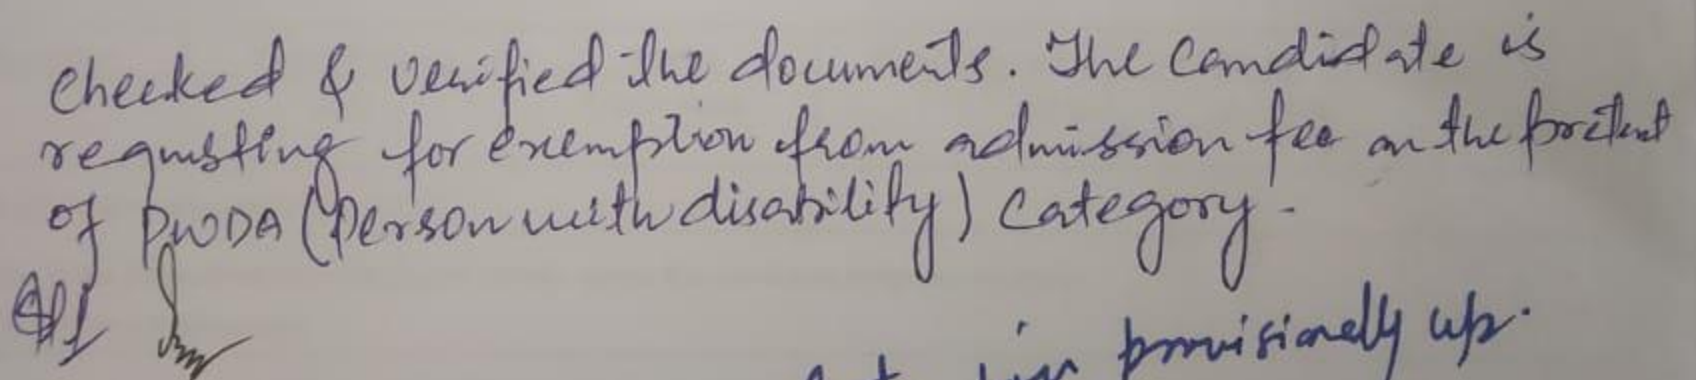 Checked & verified the documents. The Candidate is
requsting for exemption from admission fee on the pretext
of PWDA (Person with disability) Category.
provisionally up.